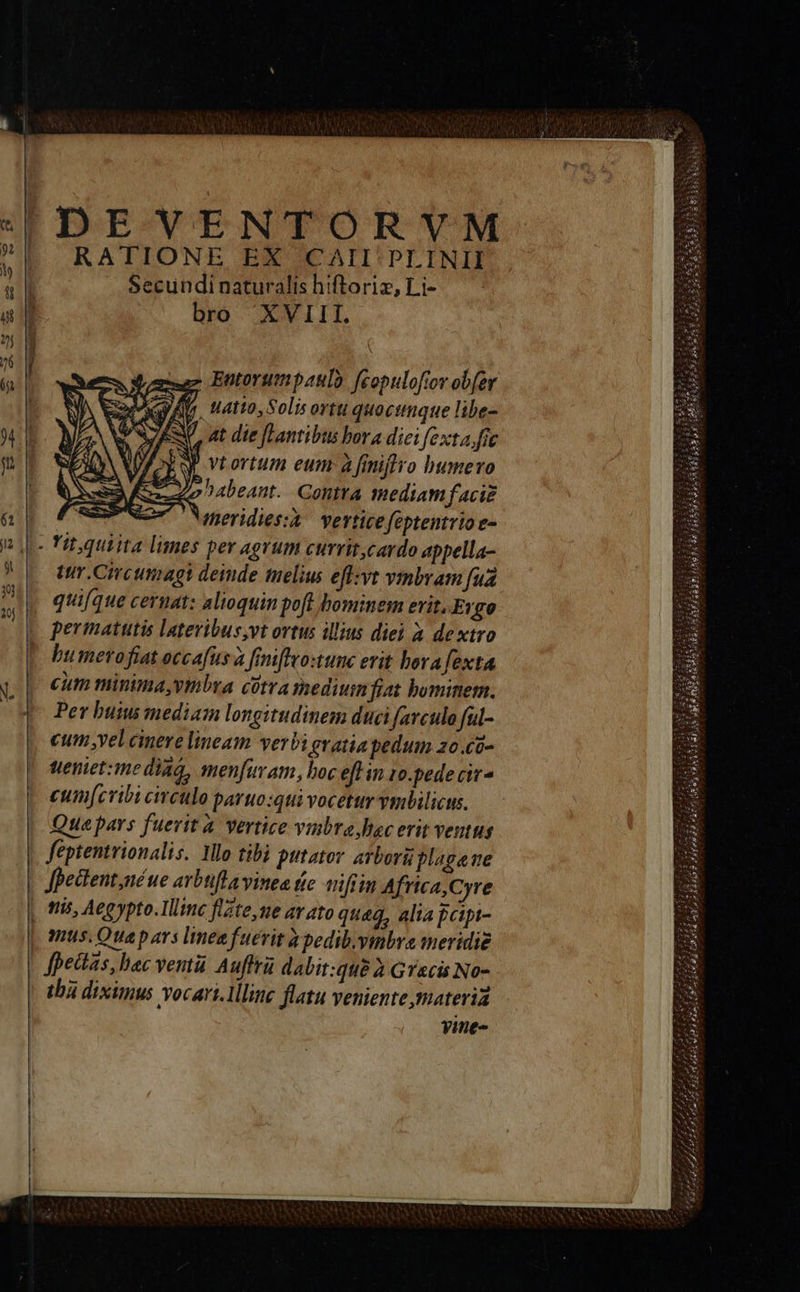 DE VENTORVM
RATIONE EX CAII PLINII
Secundi naturalis hiſtoriæ, Li-
bro XVIII.
Ventorum paulò ſcopuloſior obſer
uatio, Solis ortu quocunque libe-
at die ſtantibus hora diei ſexta, ſic
vt ortum eum à ſiniſtro humero
habeant. Contra mediam faciē
meridies: à vertice ſeptentrio e-
rit, qui ita limes per agrum currit, cardo appella-
tur. Circumagi deinde melius eſt: vt vmbram ſuā
quiſque cernat: alioquin poſt hominem erit. Ergo
permutatis lateribus, vt ortus illius diei à dextro
humero fiat occaſus à ſiniſtro: tunc erit hora ſexta
cùm minima, vmbra cōtra medium fiat hominem.
Per huius mediam longitudinem duci ſarculo ſul-
cum, vel cinere lineam verbi gratia pedum 20. cō-
ueniet: mediāq̄, menſuram, hoc eſt in 10. pede cir-
cumſcribi circulo paruo: qui vocetur vmbilicus.
Quæ pars fuerit à vertice vmbræ, hæc erit ventus
ſeptentrionalis. Illo tibi putator arborū plagæ ne
ſpectent, néue arbuſta vineæ ue niſi in Africa, Cyre
nis, Aegypto. Illinc flāte, ne arato quæq̄, alia p̄cipi-
mus. Quæ pars lineæ fuerit à pedib. vmbræ meridiē
ſpectās, hæc ventū Auſtrū dabit: quē à Græcis No-
tū diximus vocari. Illinc flatu veniente, materiā
vine-